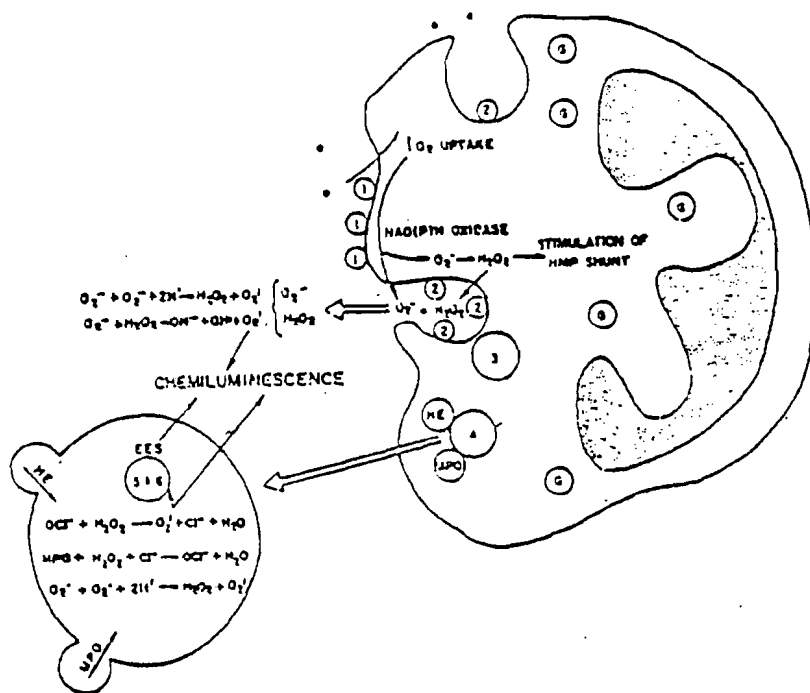 G
2
G
O₂ UPTAKE
1
G
1
NAD(P)H OXIDASE
1
O₂⁻ → H₂O₂ → STIMULATION OF
HMP SHUNT
O₂⁻ + O₂⁻ + 2H⁺ → H₂O₂ + O₂¹ { O₂⁻
O₂⁻ + H₂O₂ → OH⁻ + OH + O₂¹ { H₂O₂
2
O₂⁻ + H₂O₂ 2
2
G
3
CHEMILUMINESCENCE
ME
4
MPO
G
EES
ME
OCl⁻ + H₂O₂ → O₂¹ + Cl⁻ + H₂O
MPO + H₂O₂ + Cl⁻ → OCl⁻ + H₂O
O₂⁻ + O₂⁻ + 2H⁺ → H₂O₂ + O₂¹
MPO